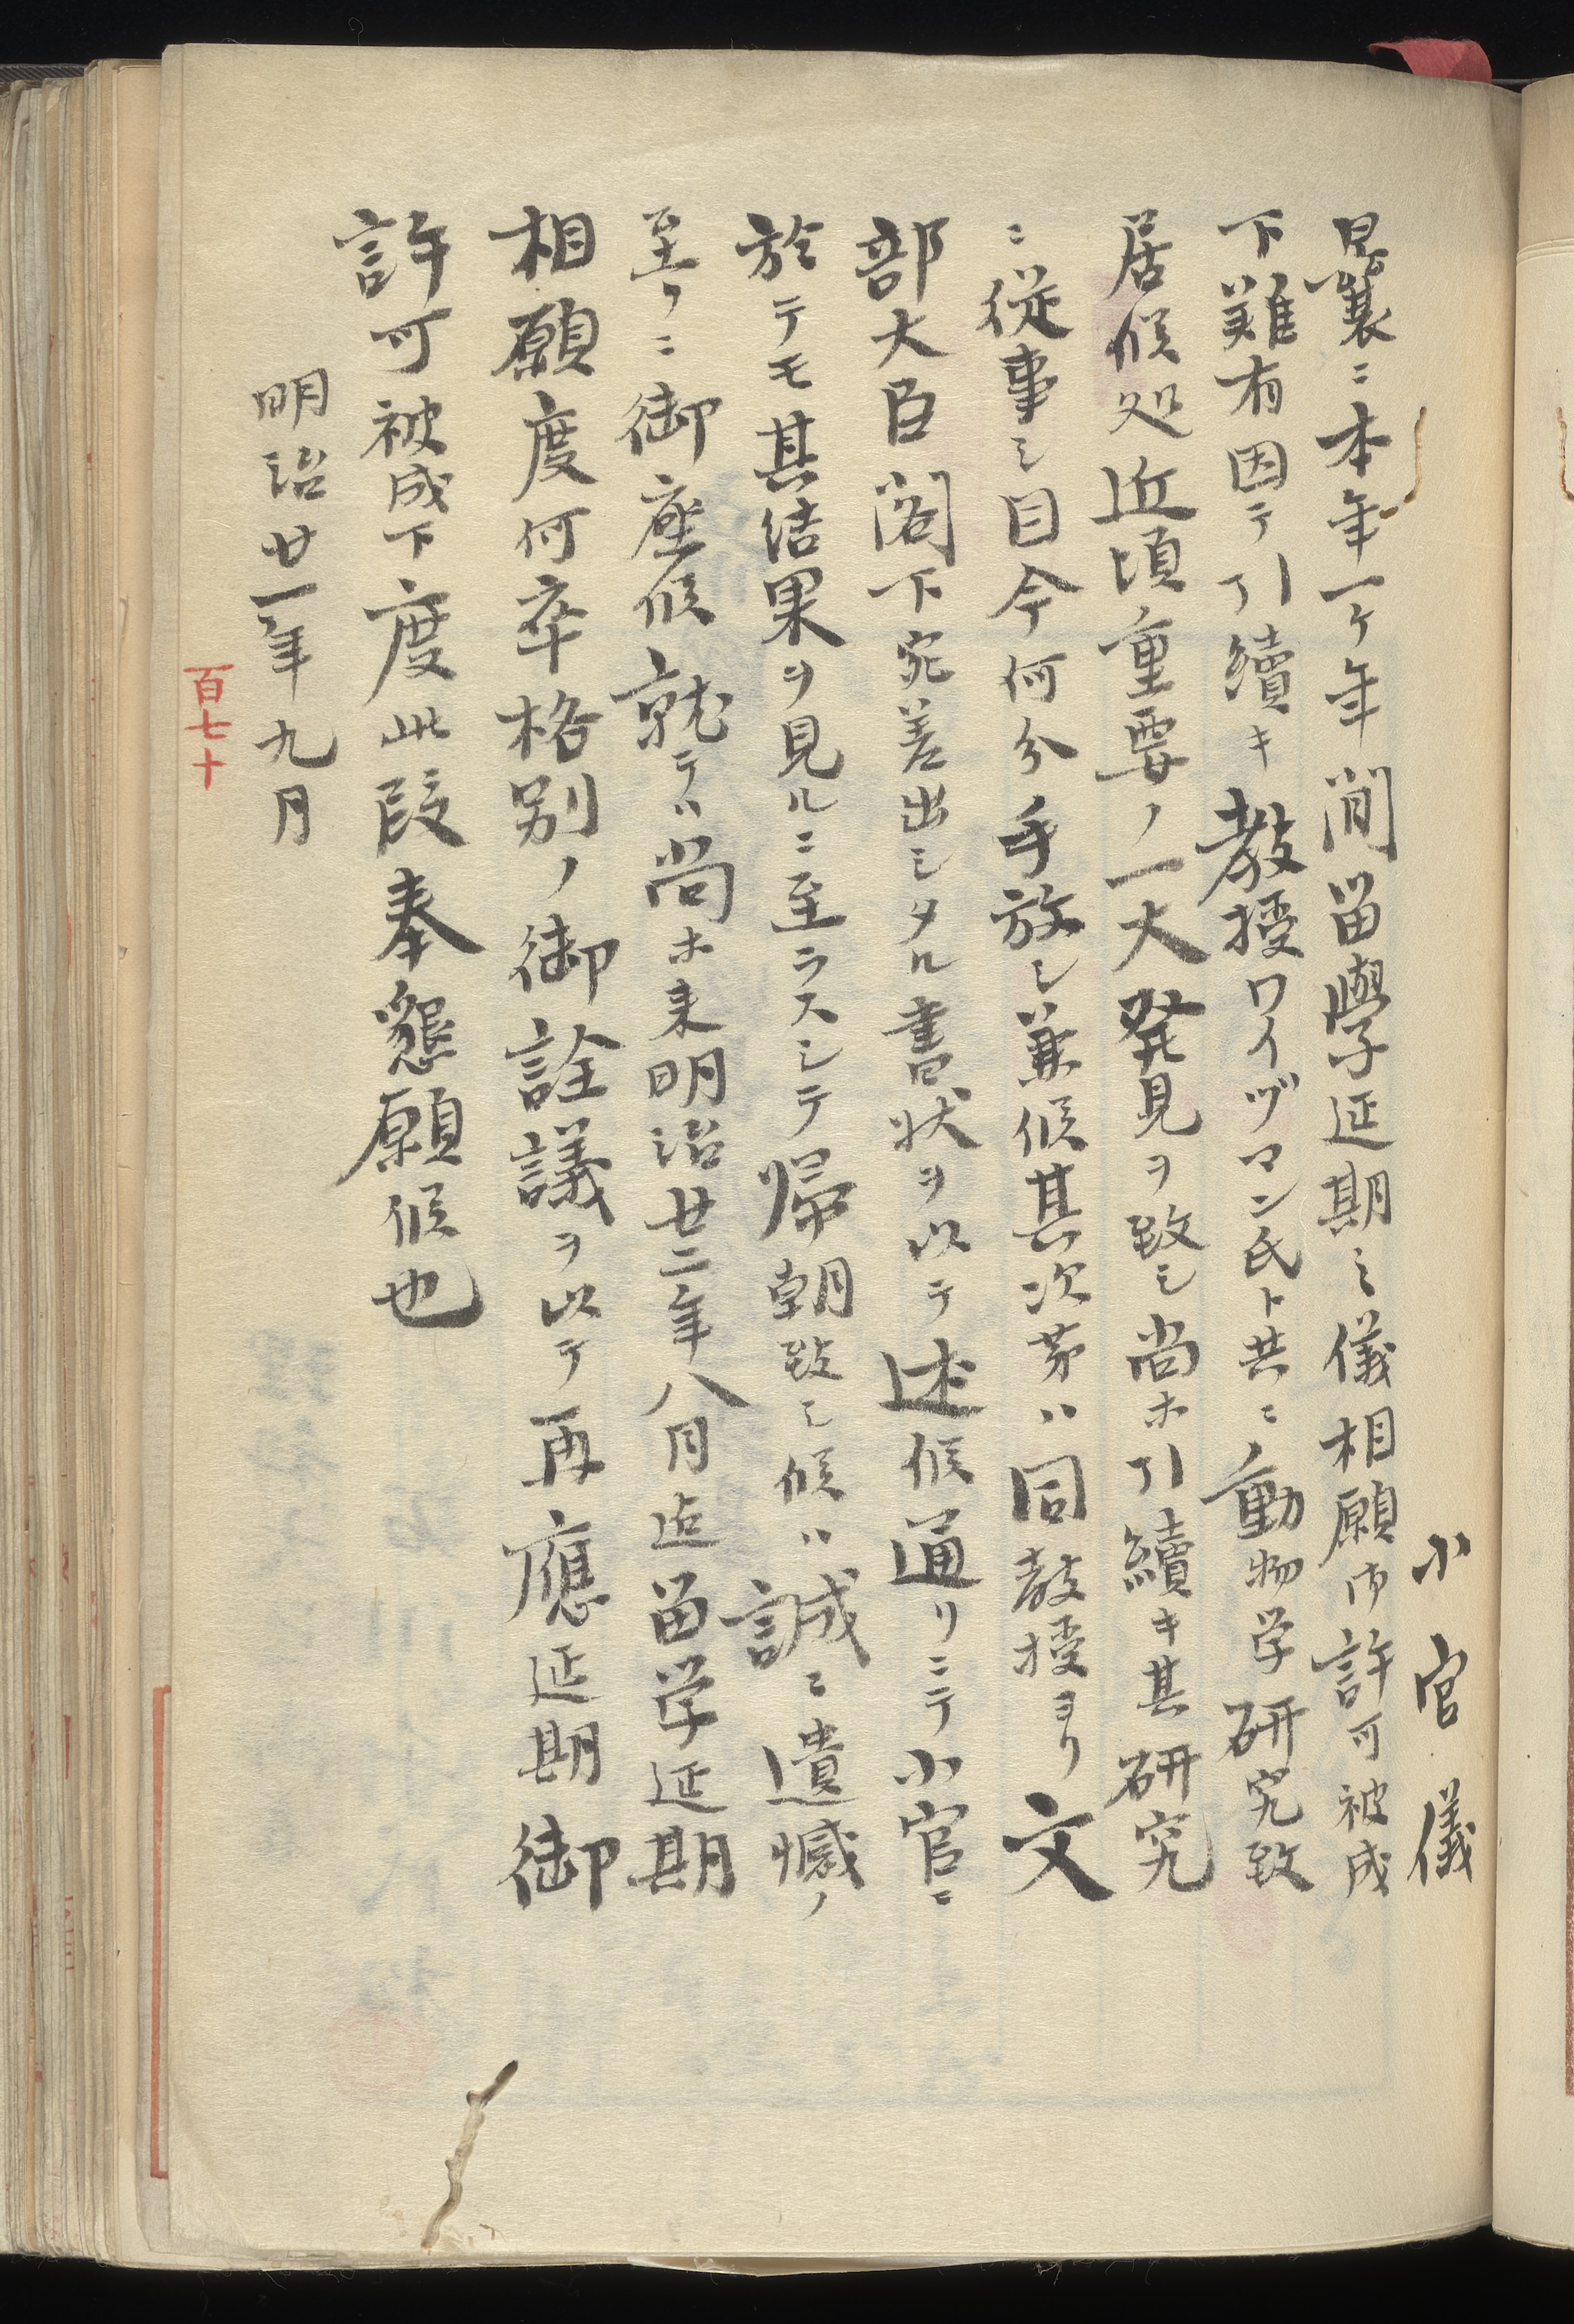 小官儀
曩ニ本年一ケ年間留學延期之儀相願御許可被成
下難有因テ引續キ教授ワイヅマン氏ト共ニ動物学研究致
居候処近頃重要ノ一大発見ヲ致シ尚ホ引續キ其研究
ニ従事シ目今何分手放シ兼候其次第ハ同教授ヨリ文
部大臣閣下宛差出シタル書状ヲ以テ述候通リニテ小官ニ
於テモ其結果ヲ見ルニ至ラスシテ帰朝致シ候ハ誠ニ遺憾ノ
至リニ御座候就テハ尚ホ来明治廿二年八月迄留学延期
相願度何卒格別ノ御詮議ヲ以テ再應延期御
許可被成下度此段奉懇願候也
明治廿一年九月
百七十